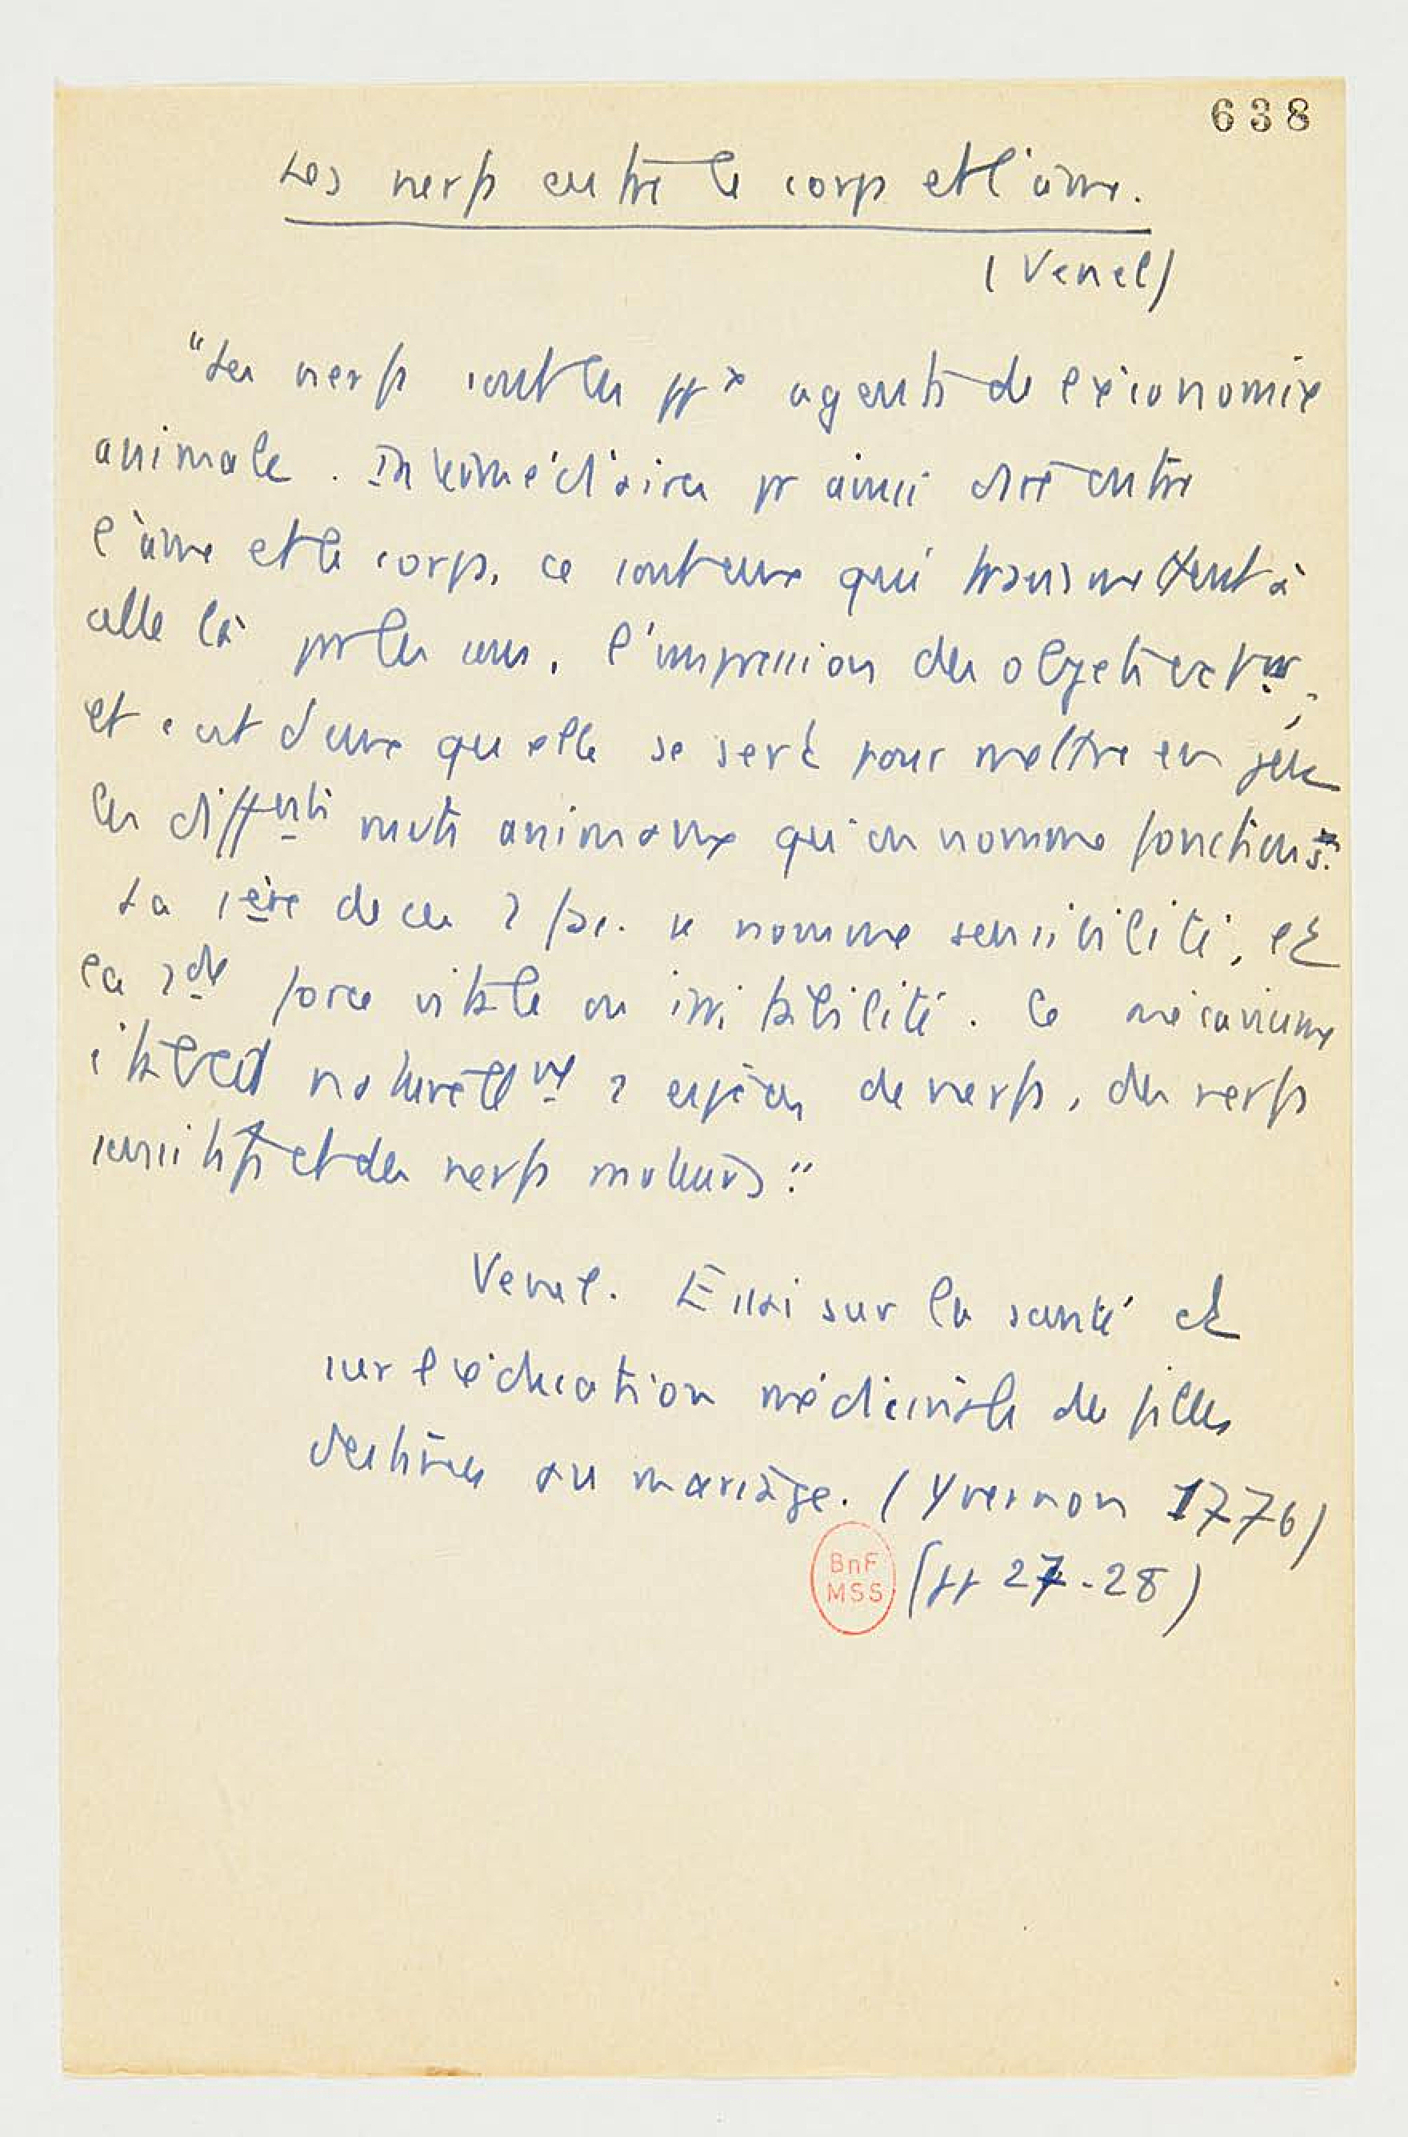 638
Les nerfs entre le corps et l'âme.
(Venel)
"Les nerfs sont les ppx agents de l'économie
animale. Intermédiaires pr ainsi dire entre
l'âme et le corps, ce sont eux qui transmettent à
celle là pr les sens, l'impression des objets extrs,
et c'est d'eux qu'elle se sert pour mettre en jeu
les difffents mvts animaux qu'on nomme fonctions.
La 1ère de ces 2 fac. se nomme sensibilité, et
la 2de force vitale ou irritabilité. Ce mécanisme
établit naturellmt 2 espèces de nerfs, des nerfs
sensitifs et des nerfs moteurs."
Venel. Essai sur la santé et
sur l'éducation médicinale des filles
destinées au mariage. (Yvernon 1776)
BnF
MSS
(pp 27-28)